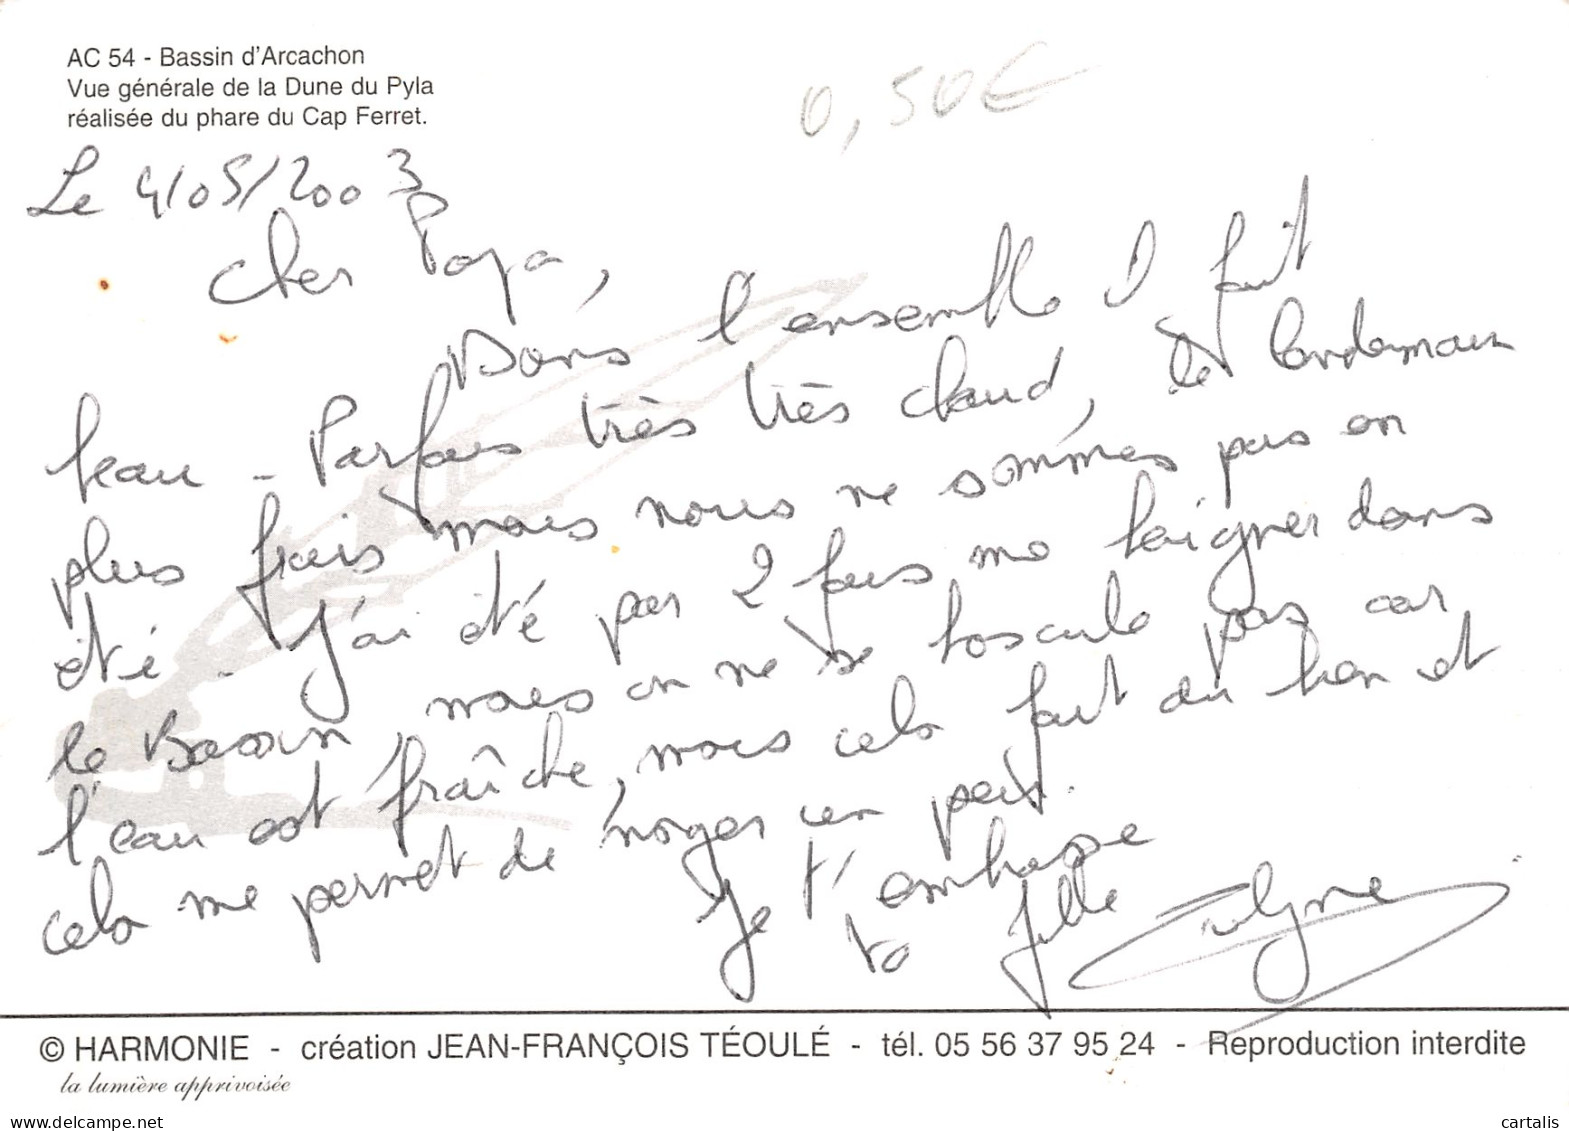 AC 54 - Bassin d'Arcachon
Vue générale de la Dune du Pyla
réalisée du phare du Cap Ferret.
0,50€
Le 4/05/2003
Cher Papa,
Dans l'ensemble il fait
beau - Parfois très très chaud, le lendemain
plus frais mais nous ne sommes pas en
été - J'ai été par 2 fois me baigner dans
le Bassin, mais on ne se bouscule pas car
l'eau est fraîche, mais cela fait du bien et
cela me permet de nager un peu.
Je t'embrasse
ta fille
© HARMONIE - création JEAN-FRANÇOIS TÉOULÉ - tél. 05 56 37 95 24 - Reproduction interdite
la lumière apprivoisée
cartalis